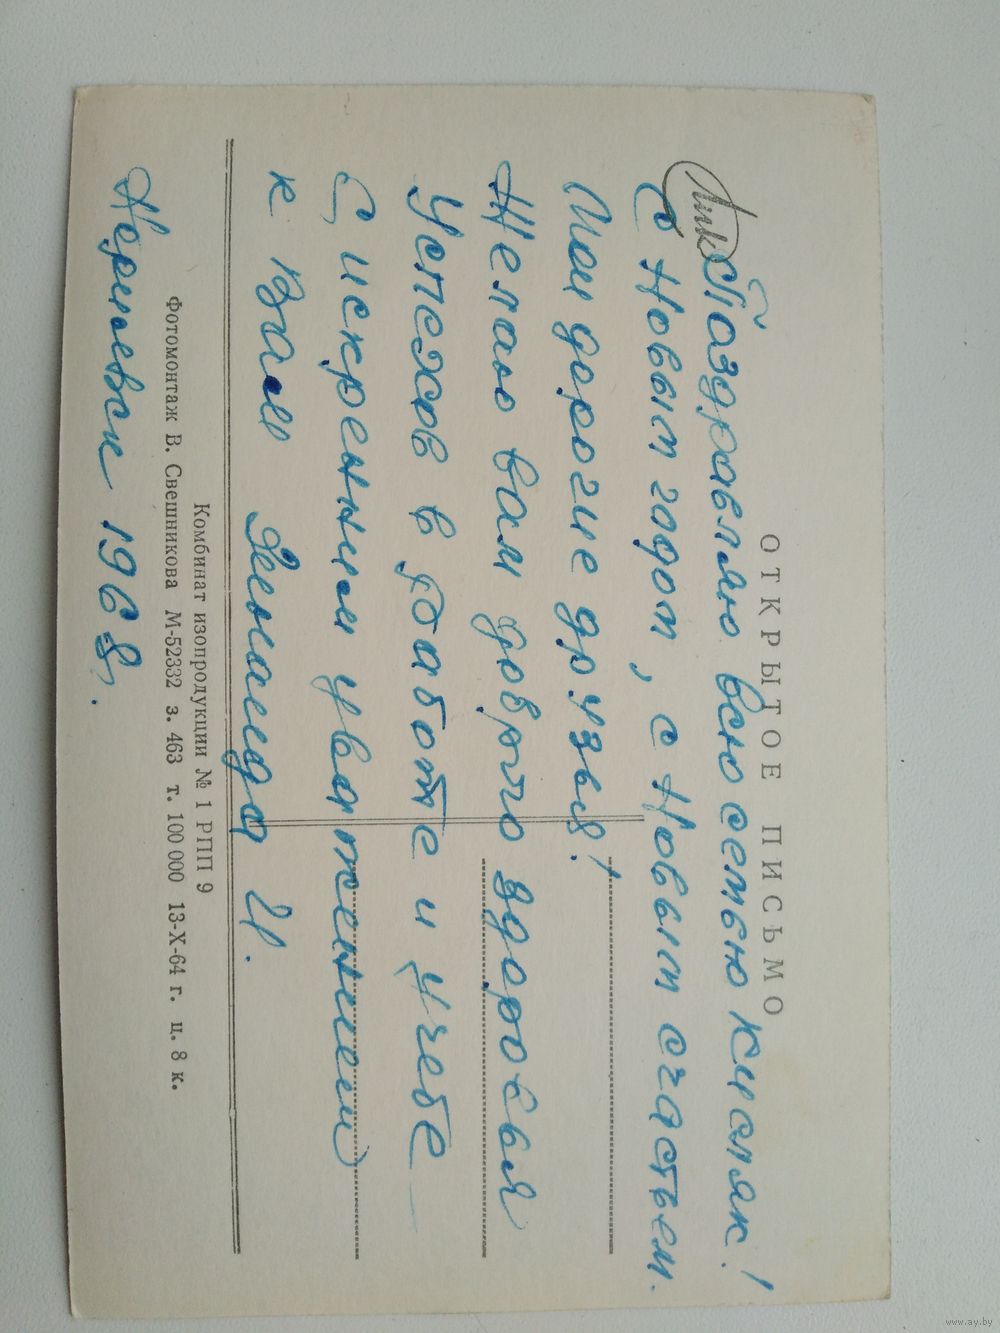 ОТКРЫТОЕ ПИСЬМО
Поздравляю всю семью Кисляк!
С Новым годом, с Новым счастьем.
Мои дорогие друзья!
Желаю вам доброго здоровья
Успехов в работе и учебе
С искренним уважением
к Вам И.
1968г.
Комбинат изопродукции № 1 РПП 9
Фотомонтаж В. Свешникова М-52332 з. 463 т. 100 000 13-X-64 г. ц. 8 к.
www.ay.by